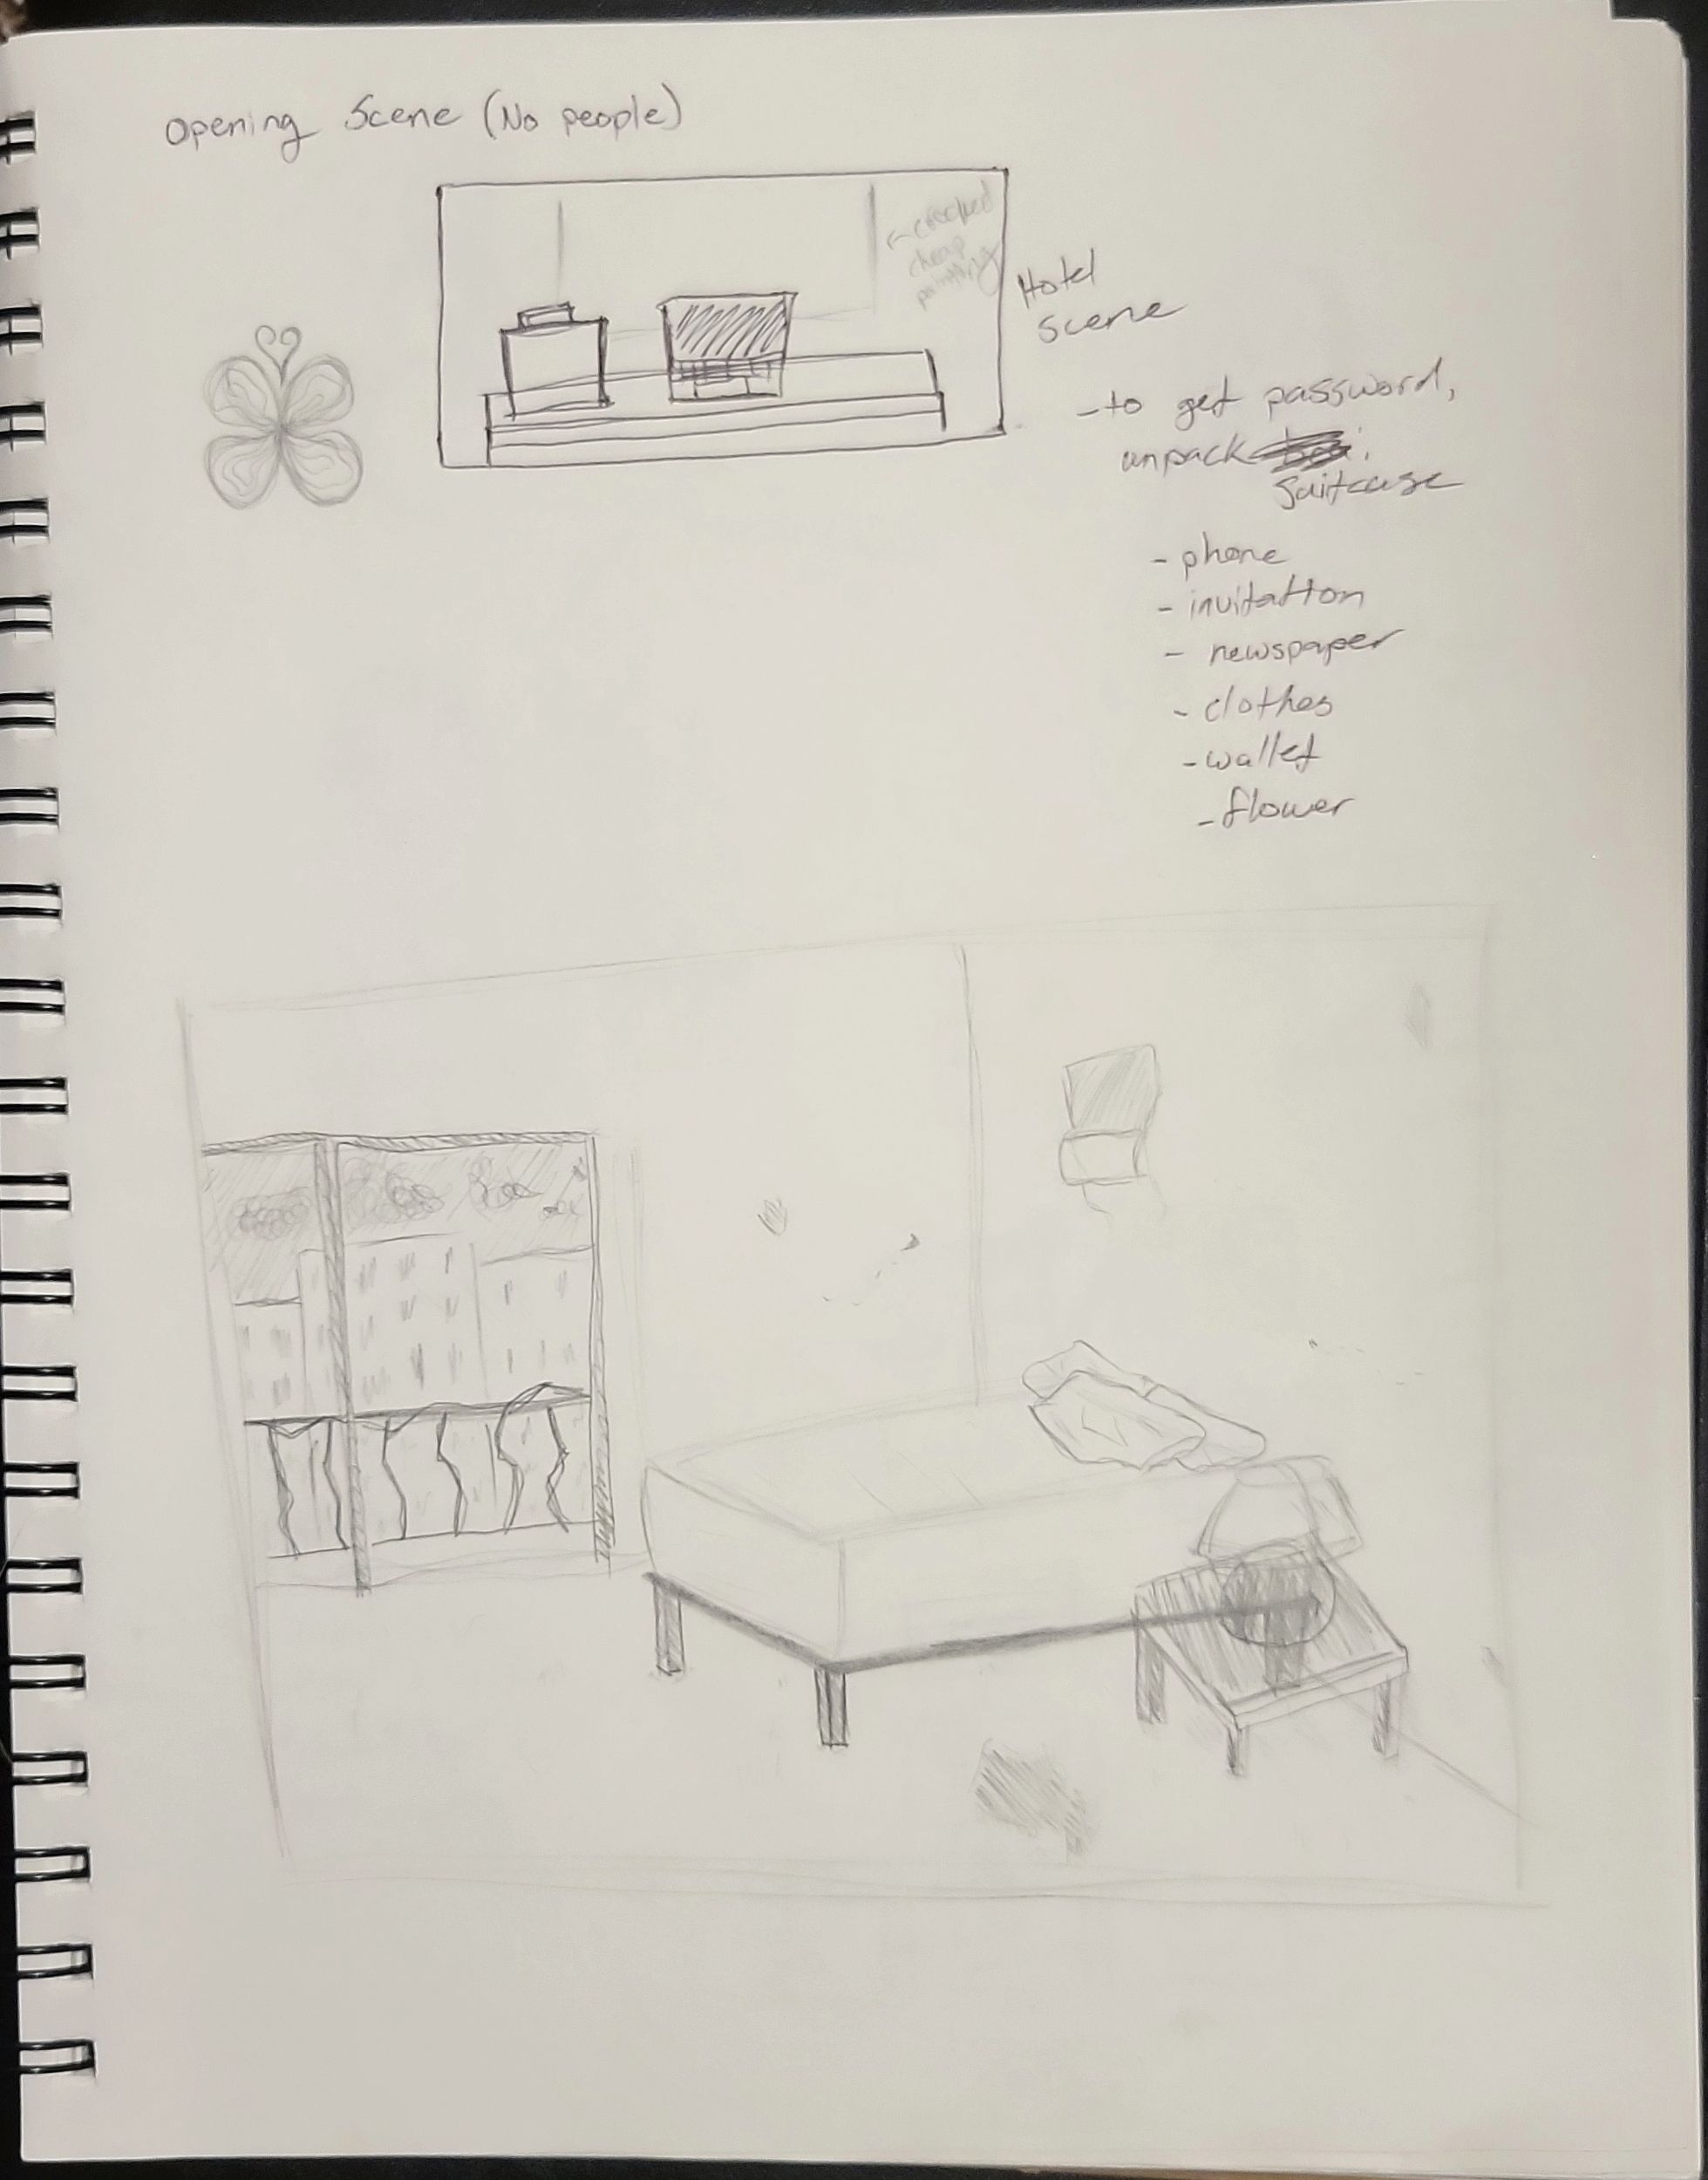 Opening Scene (No people)
← crooked
cheap
painting
Hotel
Scene
- to get password,
unpack
suitcase
- phone
- invitation
- newspaper
- clothes
- wallet
- flower